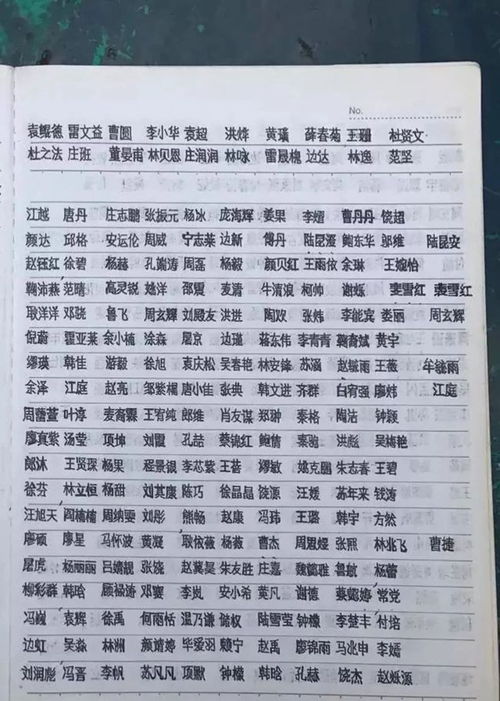 No.
袁鲲德 雷文益 曹圆 李小华 袁超 洪烨 黄瑀 薛春菊 王翩 杜贤文
杜之法 庄班 董晏甫 林贝恩 庄润润 林咏 雷晟槐 边达 林逸 范坚
江越 唐丹 庄志鹏 张振元 杨冰 庞海辉 姜果 李嫱 曹丹丹 饶超
颜达 邱格 安运伦 周威 宁志莱 边新 傅丹 鲍东华 邬维 陆昆安
赵钰红 徐碧 杨赫 孔端涛 周磊 杨毅 颜贝红 王雨依 余琳 王婉怡
鞠沛燕 范晴 高灵锐 姚洋 邵震 麦清 牛清浪 柯帅 谢烁 裴雪红 裴雪红
耿洋洋 邓骁 鲁飞 周玄辉 刘殿友 洪进 陶双 张炜 李能宾 娄丽 周玄辉
倪蔚 霍亚莱 余小楠 涂淼 屠京 边瑶 蒋东伟 李青青 鞠裔斌 黄宇
缪瑛 韩佳 游毅 徐旭 袁庆松 吴春艳 林安锋 苏涵 赵毓雨 王薇 牟毓雨
余泽 江庭 赵亮 邹紫楣 唐小佳 张典 韩文进 齐群 白宥强 廖炜 江庭
周蕾萱 叶淳 麦裔霖 王宥纯 郎维 肖友谋 郑翀 秦格 陶沽 钟颖
廖真紫 汤莹 项坤 刘霞 孔喆 蔡锦红 鲍倩 秦驰 洪彪 吴梅艳
郎沐 王贤琛 杨果 程景银 李芯紫 王苔 缪敏 姚克鹏 朱志春 王碧
徐芬 林立恒 杨甜 刘其康 陈巧 徐晶晶 饶源 汪媛 苏年来 钱涛
汪旭天 阎楠楠 周纳雯 刘彤 熊畅 赵康 冯玮 王璐 韩宇 方然
廖硕 廖星 马怀波 黄凝 耿依薇 杨薇 曹杰 周盟煜 张熙 林北飞 曹捷
屠虎 杨丽丽 吕婧靓 张铙 赵冀昊 朱友胜 庄嘉 魏懿雅 鲁敏 杨蕾
柳彩群 韩晗 顾禄涛 邓寰 李岚 安小希 黄凡 谢德 蔡懿婷 常党
冯巍 袁辉 徐禹 何雨恬 温乃谦 陆雪莹 钟檬 李楚丰 付培
边虹 吴淼 林洲 颜靖婷 毕爱羽 赖宁 赵禹 廖锦雨 马泓申 李嫱
刘润彪 冯晋 李帆 苏凡凡 项歇 钟檬 韩晗 孔赫 饶杰 赵烁源